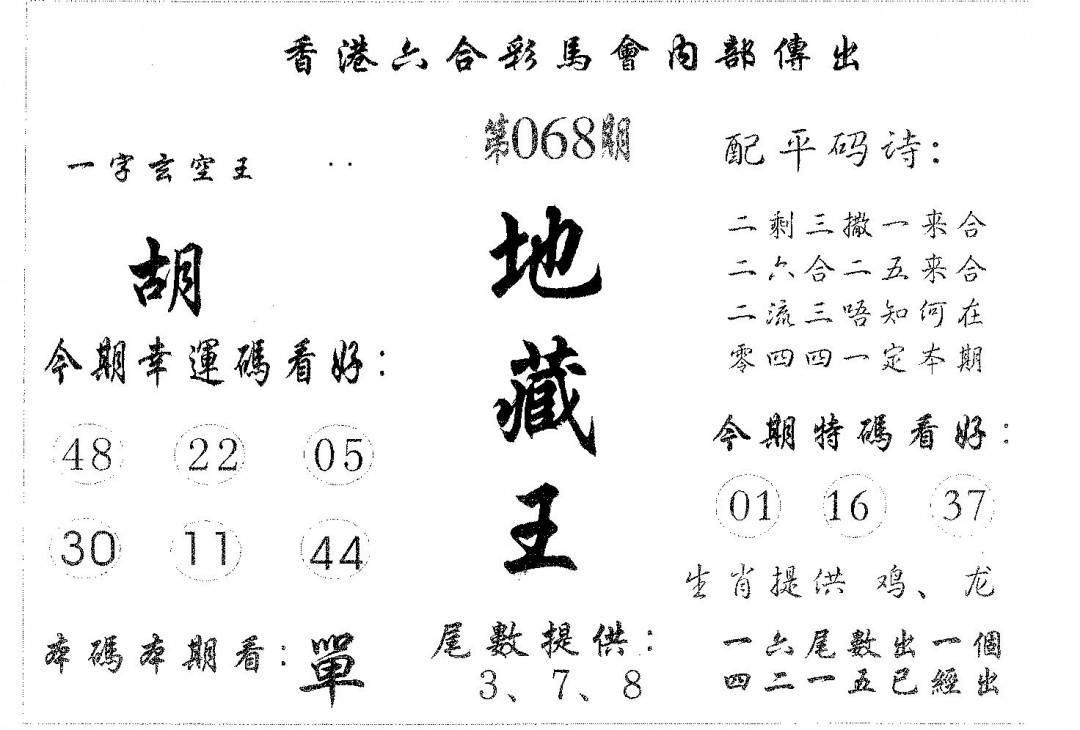 香港六合彩馬會內部傳出
第068期
一字玄空王
胡
今期幸運碼看好：
48 22 05
30 11 44
本碼本期看：單
地藏王
尾數提供：
3、7、8
配平码诗：
二剩三撒一来合
二六合二五来合
二流三唔知何在
零四四一定本期
今期特碼看好：
01 16 37
生肖提供 鸡、龙
一六尾數出一個
四二一五已經出